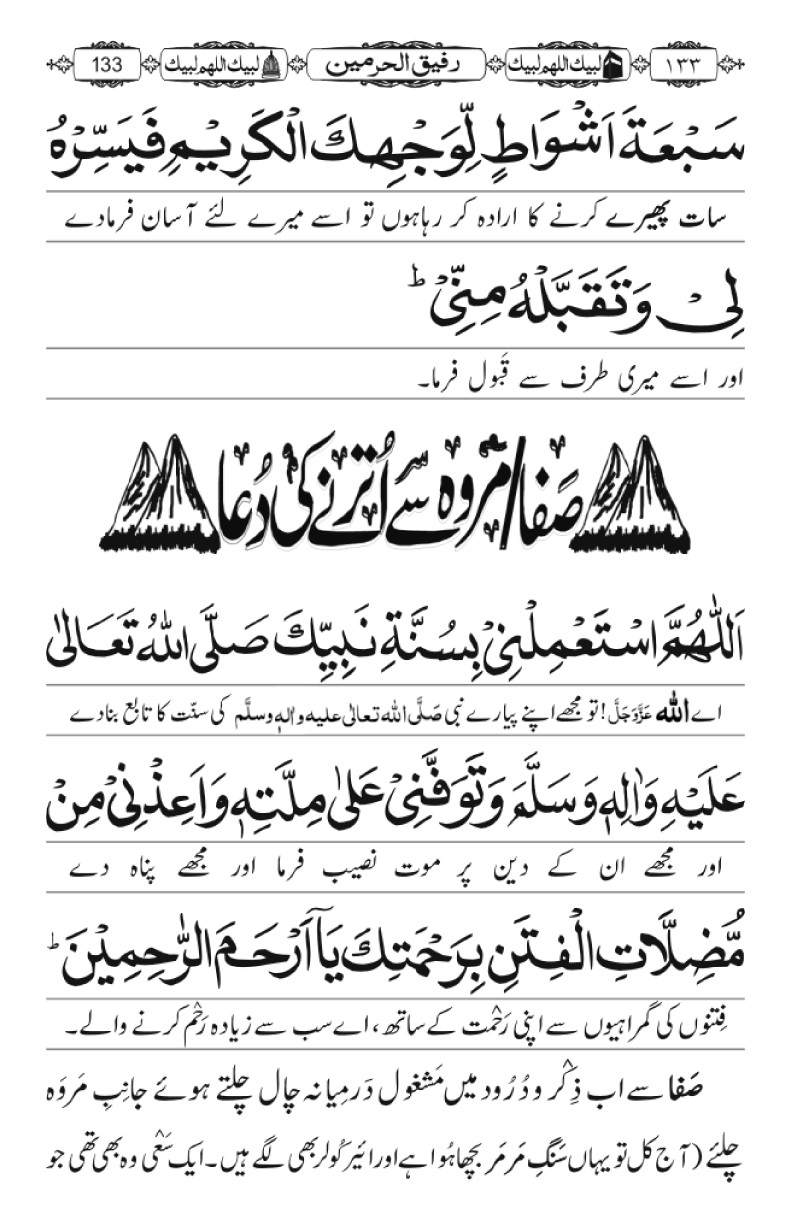 ۱۳۳ لبیك اللهم لبیك رفیق الحرمین لبیك اللهم لبیك 133
سَبْعَةَ اَشْوَاطٍ لِّوَجْهِكَ الْكَرِیْمِ فَیَسِّرْهُ
سات پھیرے کرنے کا ارادہ کر رہاہوں تو اسے میرے لئے آسان فرمادے
لِیْ وَتَقَبَّلْهُ مِنِّیْ ؕ
اور اسے میری طرف سے قَبول فرما۔
صَفا/مروہ سے اُترنے کی دُعا
اَللّٰهُمَّ اسْتَعْمِلْنِیْ بِسُنَّةِ نَبِیِّكَ صَلَّی اللهُ تَعَالٰی
اے اللّٰه عَزَّوَجَلَّ! تو مجھے اپنے پیارے نبی صَلَّی اللّٰه تعالٰی علیه واٰلهٖ وسلَّم کی سنّت کا تابع بنادے
عَلَیْهِ وَاٰلِهٖ وَسَلَّمَ وَتَوَفَّنِیْ عَلٰی مِلَّتِهٖ وَاَعِذْنِیْ مِنْ
اور مجھے ان کے دین پر موت نصیب فرما اور مجھے پناہ دے
مُّضِلَّاتِ الْفِتَنِ بِرَحْمَتِكَ یَاۤ اَرْحَمَ الرّٰحِمِیْنَ ؕ
فِتنوں کی گمراہیوں سے اپنی رَحْمت کے ساتھ، اے سب سے زیادہ رَحْم کرنے والے۔
صَفا سے اب ذِکْر و دُرُود میں مَشغول دَرمِیانہ چال چلتے ہوئے جانِبِ مَروَہ
چلئے (آج کل تو یہاں سَنگِ مَرمَر بچھا ہُوا ہے اور ائیر کُولر بھی لگے ہیں۔ ایک سَعْی وہ بھی تھی جو